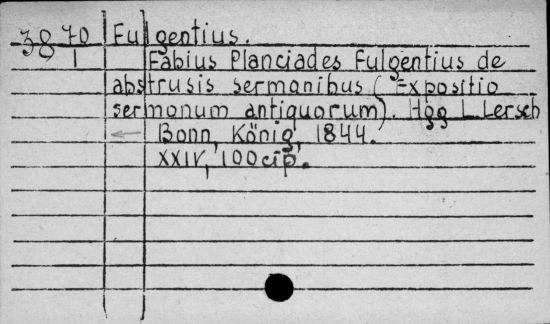 38 70 Fulgentius.
1 Fabius Planciades Fulgentius de
abstrusis sermonibus (Expositio
sermonum antiquorum). Hgg L Lersch
Bonn, König, 1844.
XXIV, 100 стр.